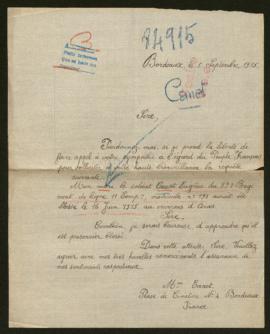 84915
Bordeaux, le 5 Septembre 1915
Canet
Sire,
Pardonnez moi, si je prend la liberté de
faire appel à votre sympathie à l'égard du Peuple Français
pour solliciter de votre haute bienveillance la requête
suivante.
Mon le soldat Canet Eugène du Régi
ment de ligne 11 Comp. matricule
blessé le 16 Juin 1915 aux environs d'Arras
Sire,
Combien je serais heureuse d'apprendre qu'il
est prisonnier blessé.
Dans cette attente, Sire, Veuillez
agréer avec mes très humbles remerciements l'assurance de
mes sentiments respectueux.
Mme Canet
Place de Bordeaux
France